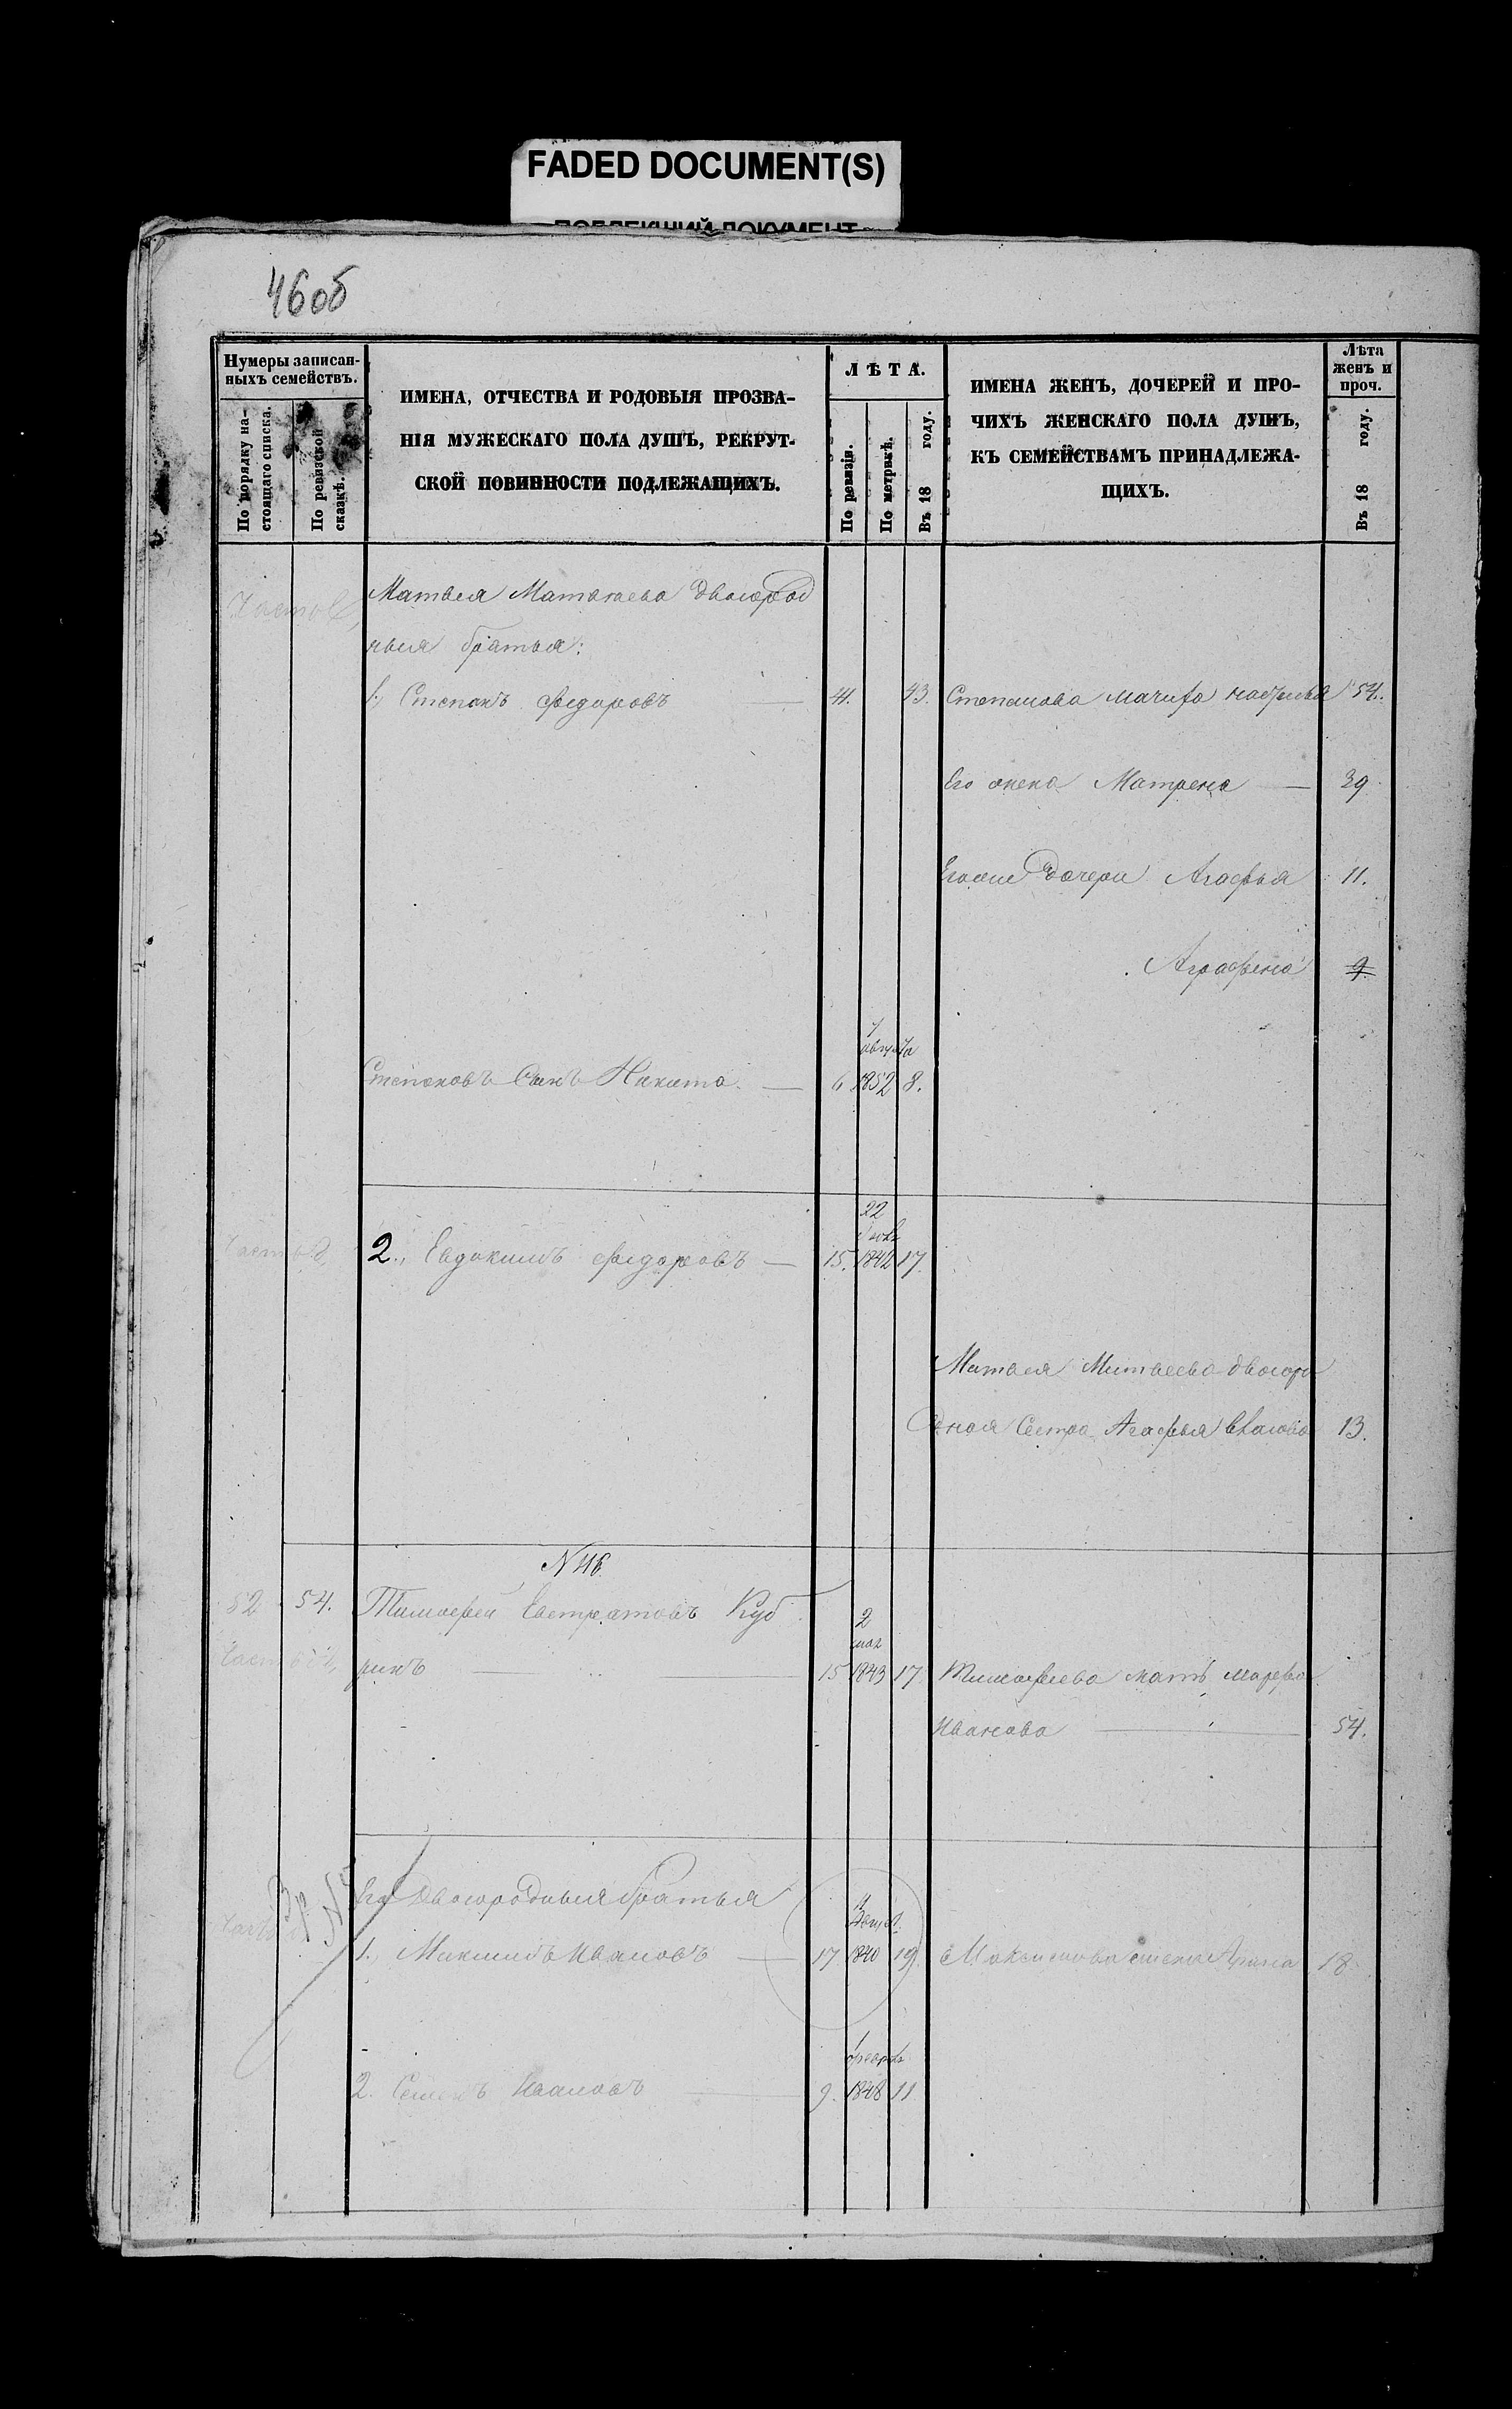 FADED DOCUMENT(S)
46об
Нумеры записан-
ныхъ семействъ.
По порядку на-
стоящаго списка.
По ревизской
сказкѣ.
ИМЕНА, ОТЧЕСТВА И РОДОВЫЯ ПРОЗВА-
НІЯ МУЖЕСКАГО ПОЛА ДУШЪ, РЕКРУТ-
СКОЙ ПОВИННОСТИ ПОДЛЕЖАЩИХЪ.
ЛѢТА.
По ревизіи.
По метрикѣ.
Въ 18 году.
ИМЕНА ЖЕНЪ, ДОЧЕРЕЙ И ПРО-
ЧИХЪ ЖЕНСКАГО ПОЛА ДУШЪ,
КЪ СЕМЕЙСТВАМЪ ПРИНАДЛЕЖА-
ЩИХЪ.
Лѣта
женъ и
проч.
Въ 18 году.
Матвея Матвѣева двоюрод
ныя братья:
1., Степанъ Федоровъ 41. 43. Степанова 54.
Его жена Матрена 39
Егоже дочери Агафья 11.
Аграфена 9
7
августа
Степановъ Сынъ Никита 6 1852 8.
22
2., Евдокимъ Федоровъ 15. 1842 17
Матвея Матвеева двоюро
дная Сестра Агафья 13.
N 116
52 54. Тимофей Евстратовъ Куд
2
мая
ринъ 15 1843 17 Тимофеева мать Марфа
Иванова 54.
Его Двоюродныя братья
1., Максимъ Ивановъ 17 1840 19 Максимова жена Арина 18
1
февраля
2. Семенъ Ивановъ 9. 1848 11